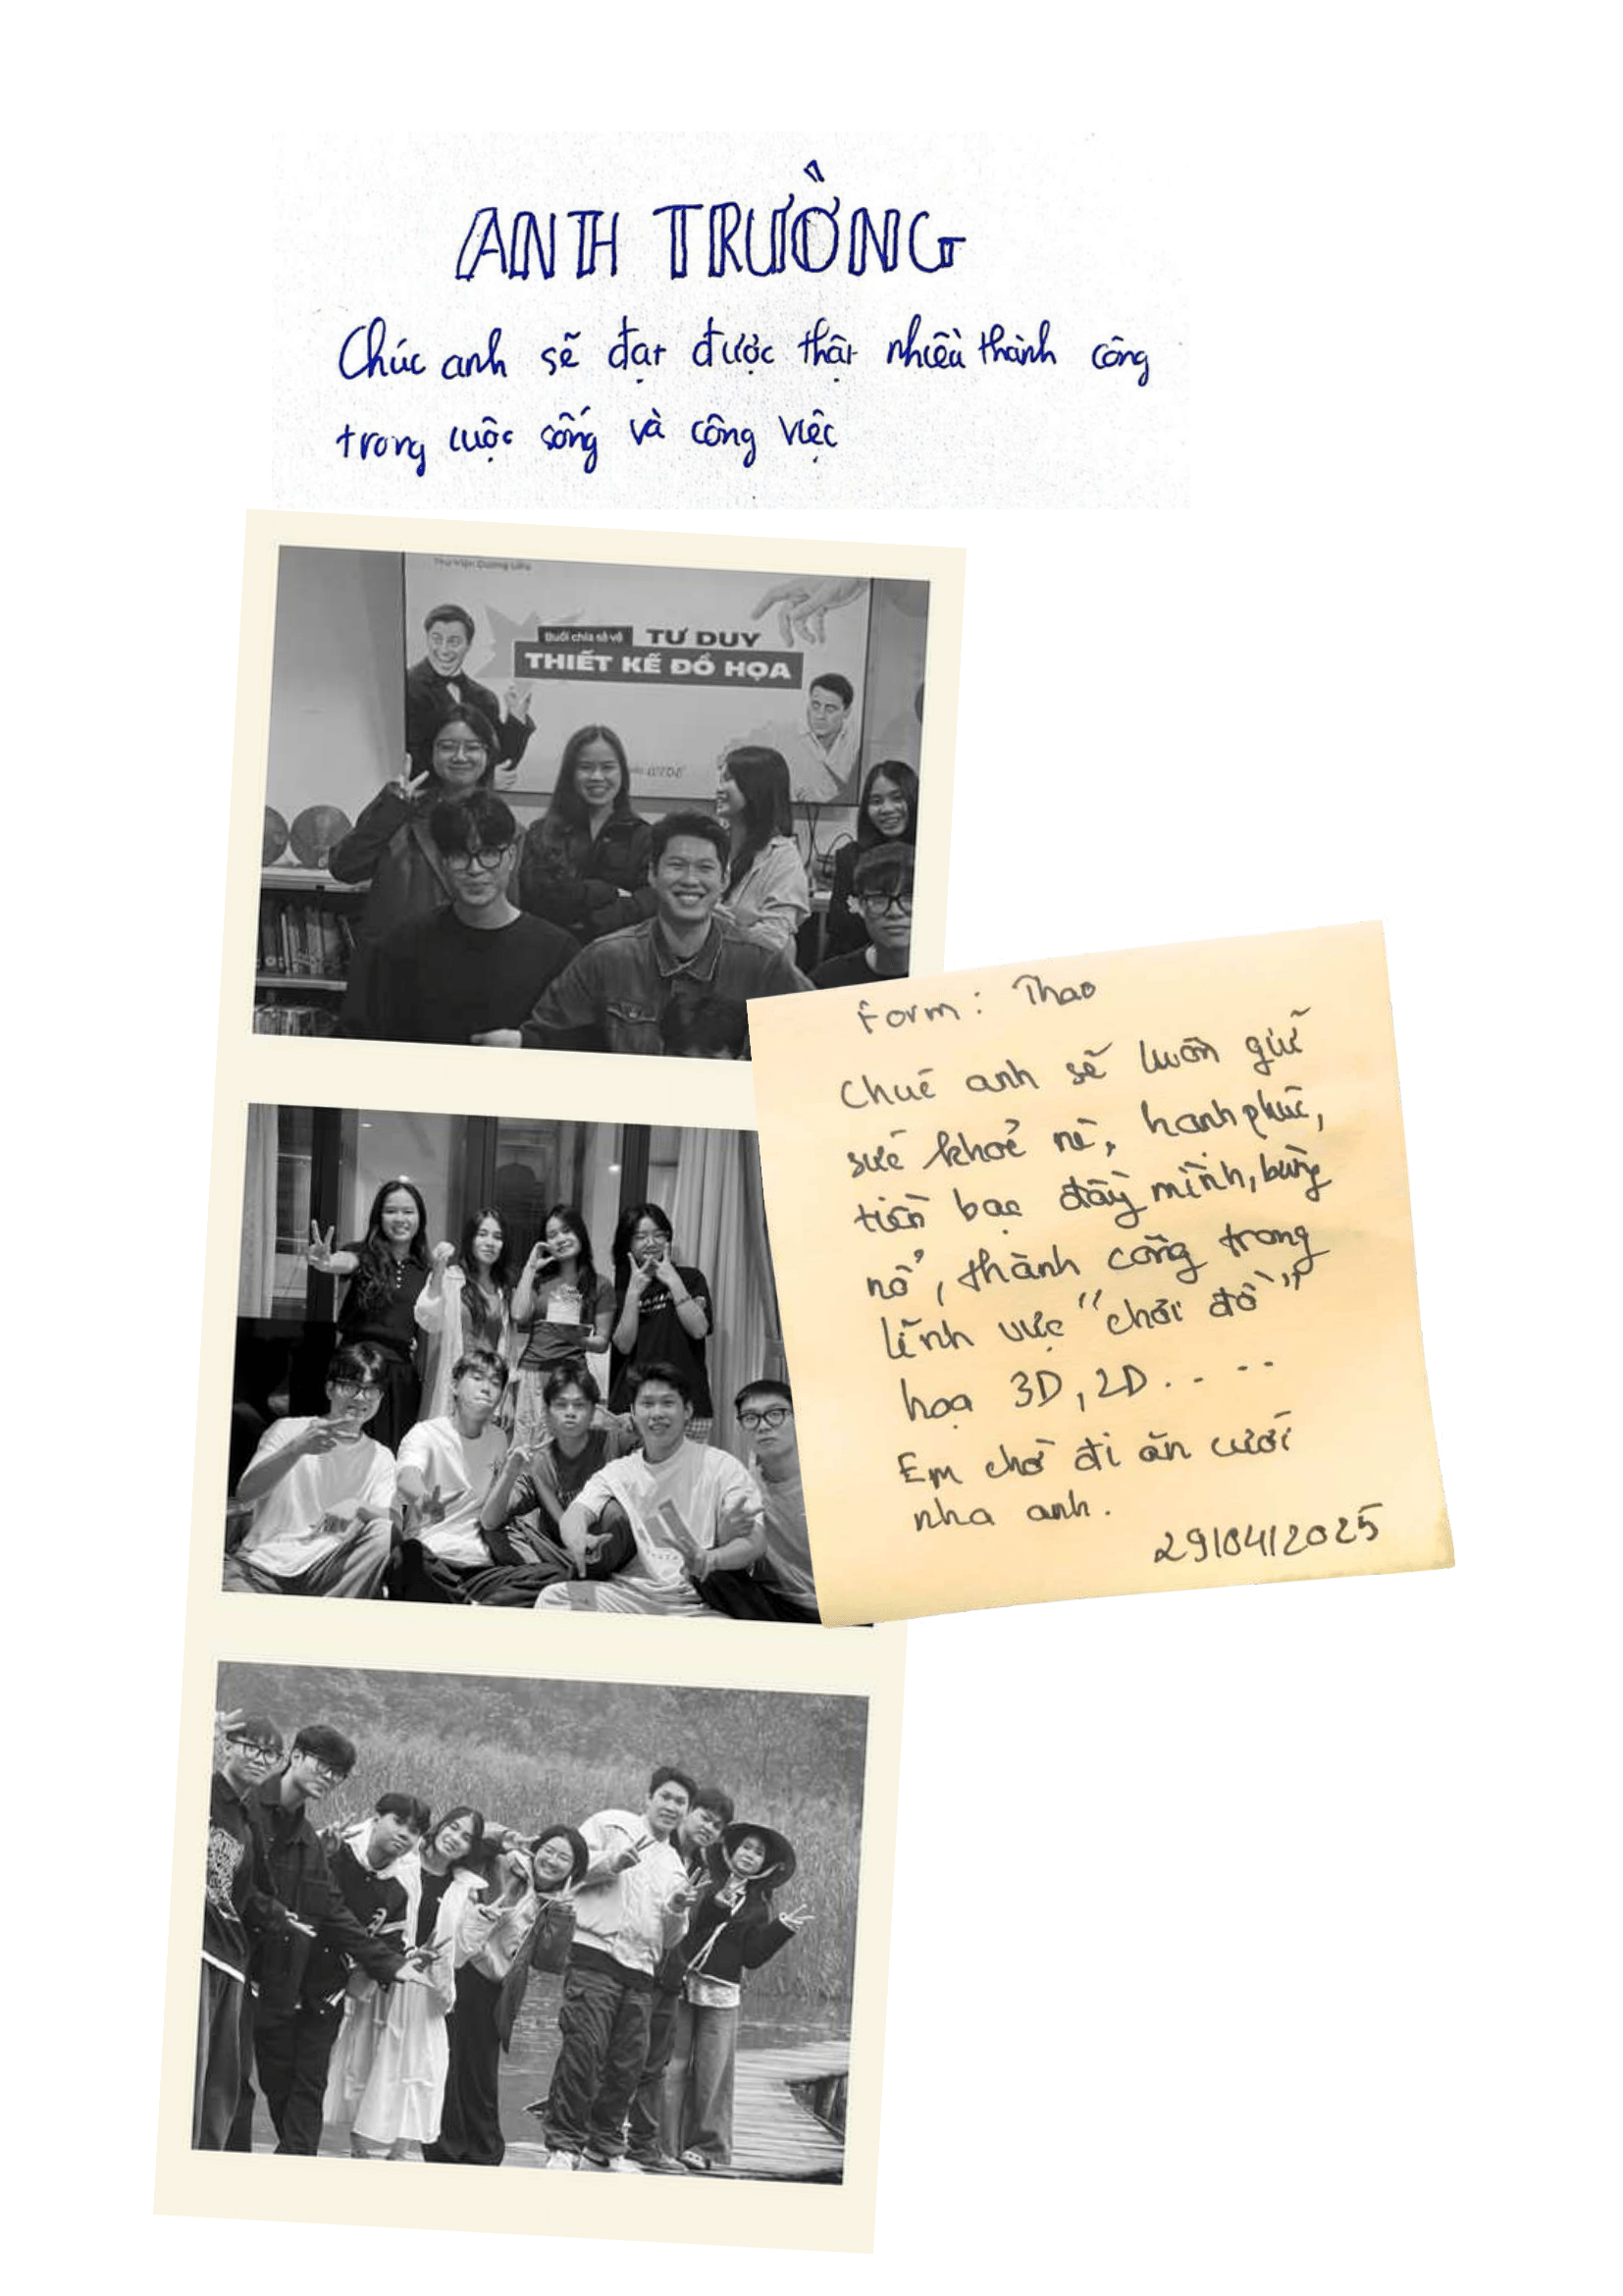 ANH TRƯỜNG
Chúc anh sẽ đạt được thật nhiều thành công
trong cuộc sống và công việc
Thư viện Dương Liễu
Buổi chia sẻ về TƯ DUY
THIẾT KẾ ĐỒ HỌA
Form: Thao
Chúc anh sẽ luôn giữ
sức khoẻ nè, hạnh phúc,
tiền bạc đầy mình, bùng
nổ, thành công trong
lĩnh vực "chơi đồ"
hoạ 3D, 2D.. ..
Em chờ đi ăn cưới
nha anh.
29/04/2025